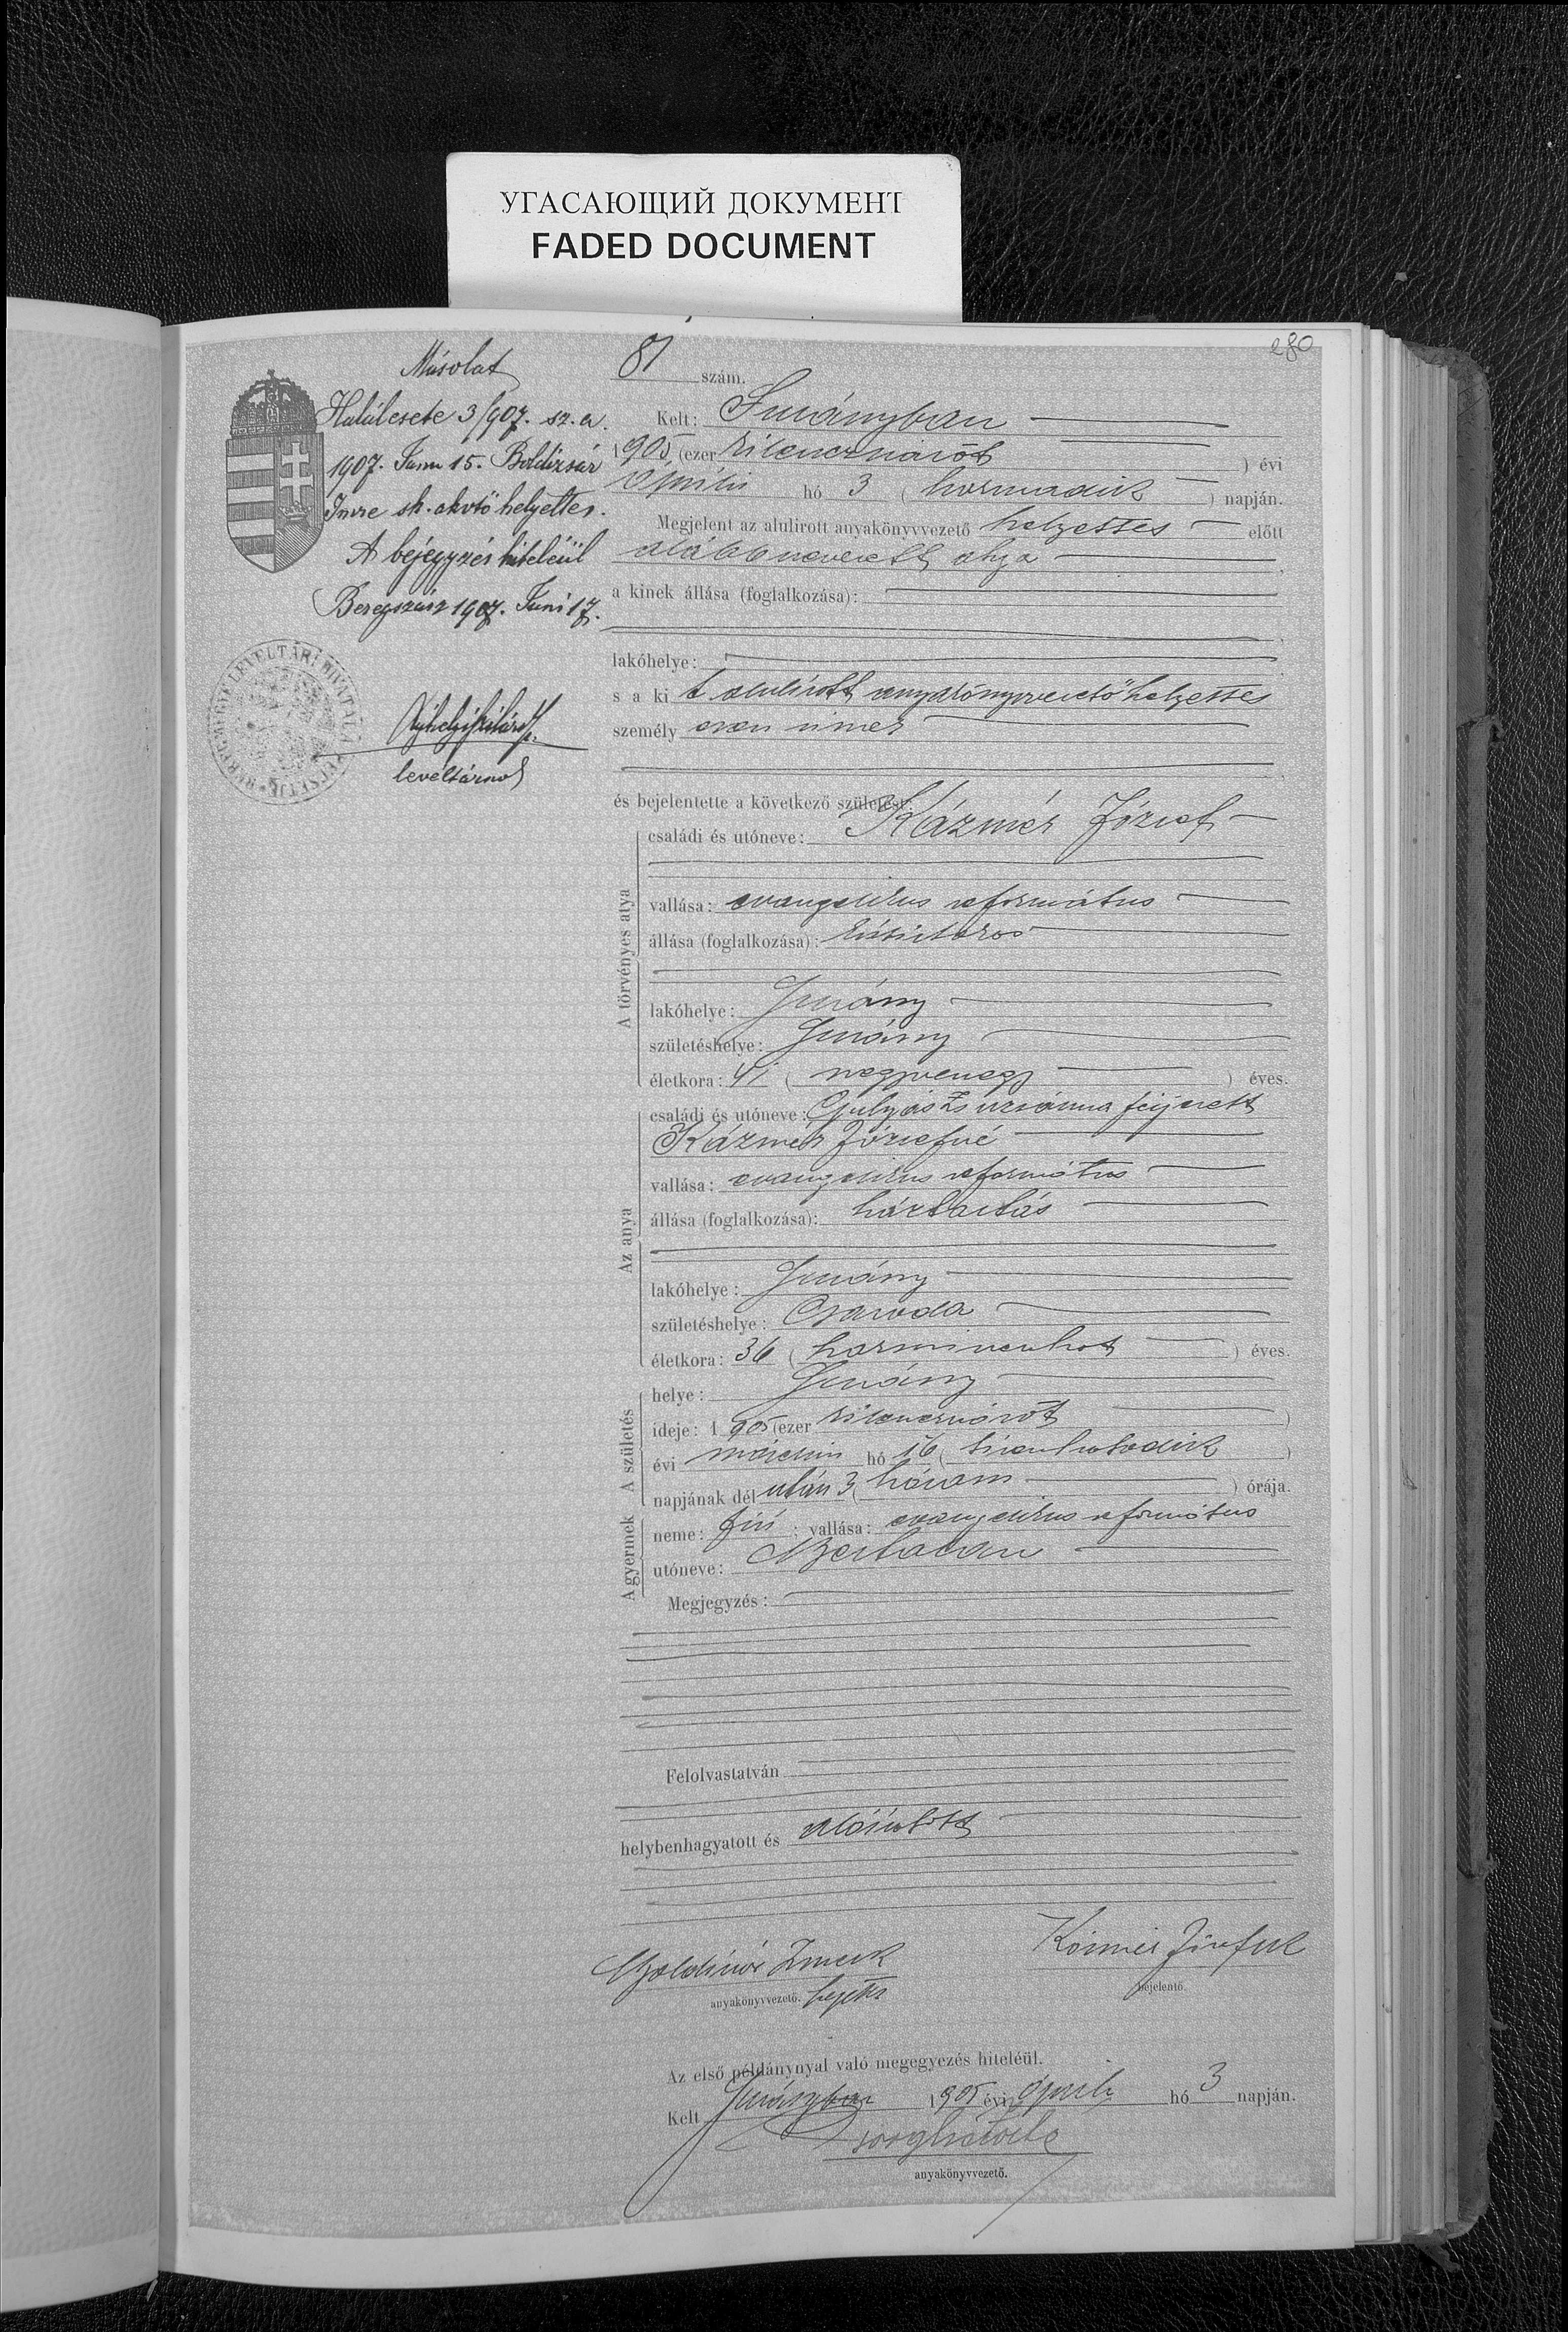 УГАСАЮЩИЙ ДОКУМЕНТ
FADED DOCUMENT
280
Másolat
Halálesete 3/907. sz. a.
1907. Juni 15. Boldizsár
Imre sk. akvtő helyettes.
A bejegyzés hiteléül
Beregszász 1907. Juni 17.
levéltárnok
81 szám.
Kelt: Surányban
1905 (ezer kilenczszázöt) évi
április hó 3 (harmadik) napján.
Megjelent az alulirott anyakönyvvezető helyettes előtt
alább nevezett atya
a kinek állása (foglalkozása):
lakóhelye:
s a ki t alulírott anyakönyvvezető helyettes
személy esen ismer
és bejelentette a következő születést:
A törvényes atya
családi és utóneve: Kázmér József
vallása: evangelikus református
állása (foglalkozása):
lakóhelye: Surány
születéshelye: Surány
életkora: 41 (negyvenegy) éves.
Az anya
családi és utóneve: Gulyás Zsuzsánna férjezett
Kázmér Józsefné
vallása: evangelikus református
állása (foglalkozása): háztartás
lakóhelye: Surány
születéshelye: Csaroda
életkora: 36 (harminczhat) éves.
A születés
helye: Surány
ideje: 1905 (ezer kilenczszázöt)
évi márczius hó 16 (tizenhatodik)
napjának dél után 3 (három) órája.
A gyermek
neme: fiú; vallása: evangelikus református
utóneve: Bertalan
Megjegyzés:
Felolvastatván
helybenhagyatott és aláíratott
Boldizsár Imre k
anyakönyvvezető. helyettes
Kázmér József sk
bejelentő.
Az első példánynyal való megegyezés hiteléül.
Kelt Surányban 1905 évi április hó 3 napján.
anyakönyvvezető.